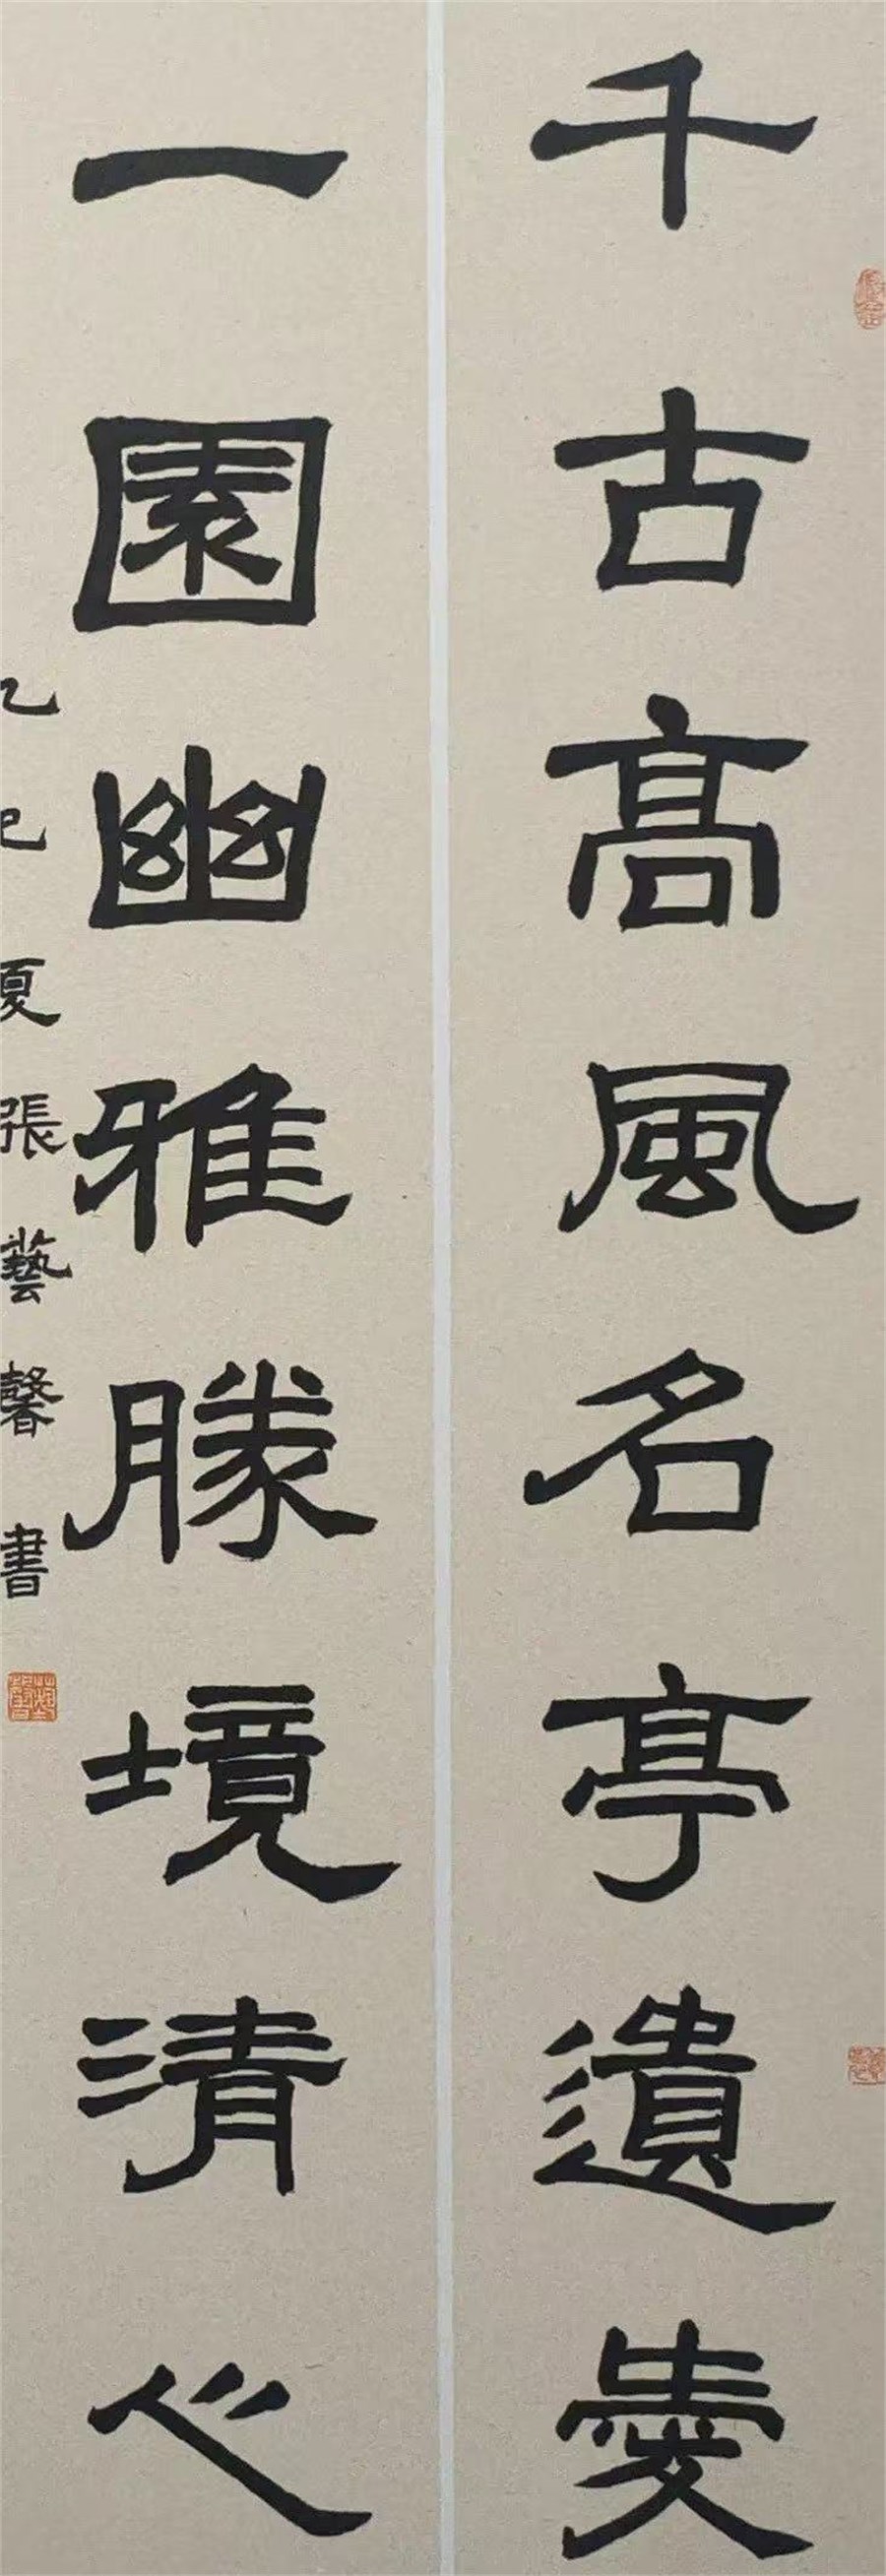 千古高風名亭遺愛
一園幽雅勝境清心
乙巳夏張藝馨書